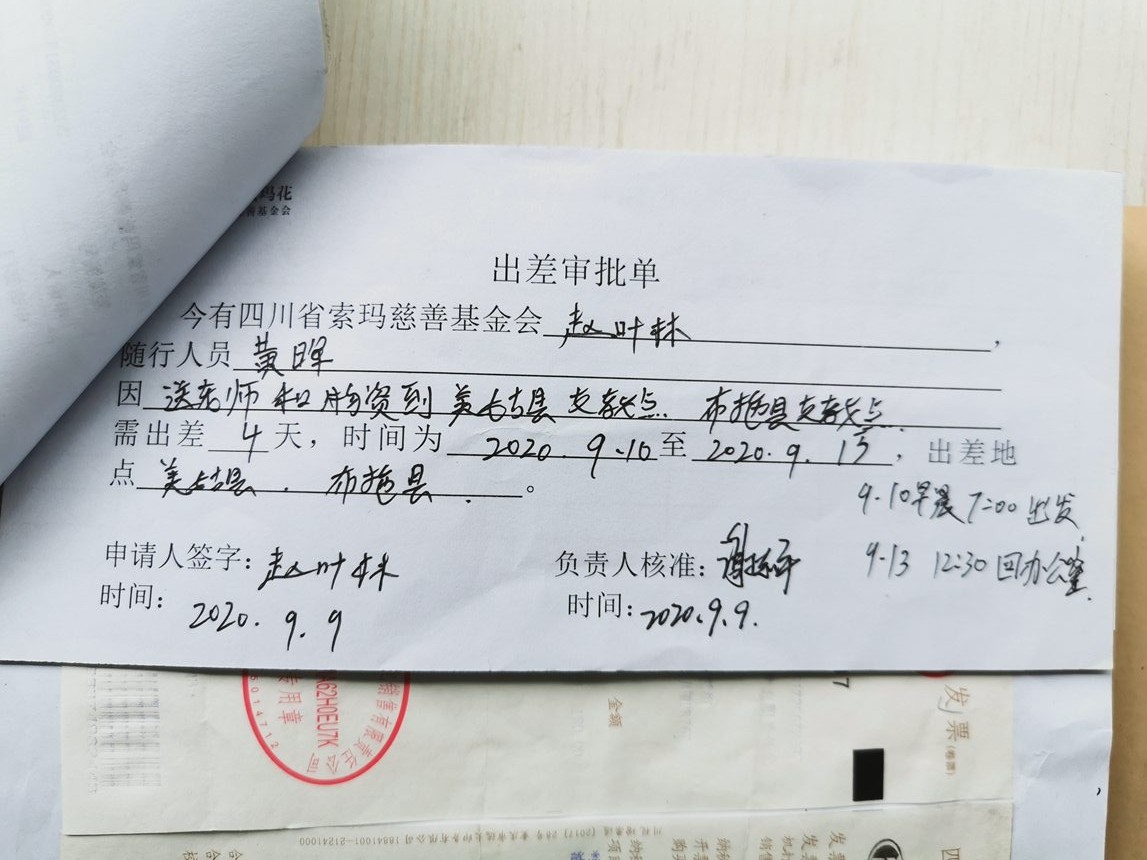 玛花
善基金会
出差审批单
今有四川省索玛慈善基金会 赵叶林 ,
随行人员 黄晖
因 送老师和物资到美姑县支教点、布拖县支教点
需出差 4 天，时间为 2020.9.10 至 2020.9.13 ，出差地
点 美姑县、布拖县 。
9.10早晨7:00出发
申请人签字：赵叶林 负责人核准：
9.13 12:30回办公室.
时间：2020.9.9 时间：2020.9.9.
A62H0EU7K
专用章
5014712
金额
7
发票(卷票)
18841001-21241000
发票